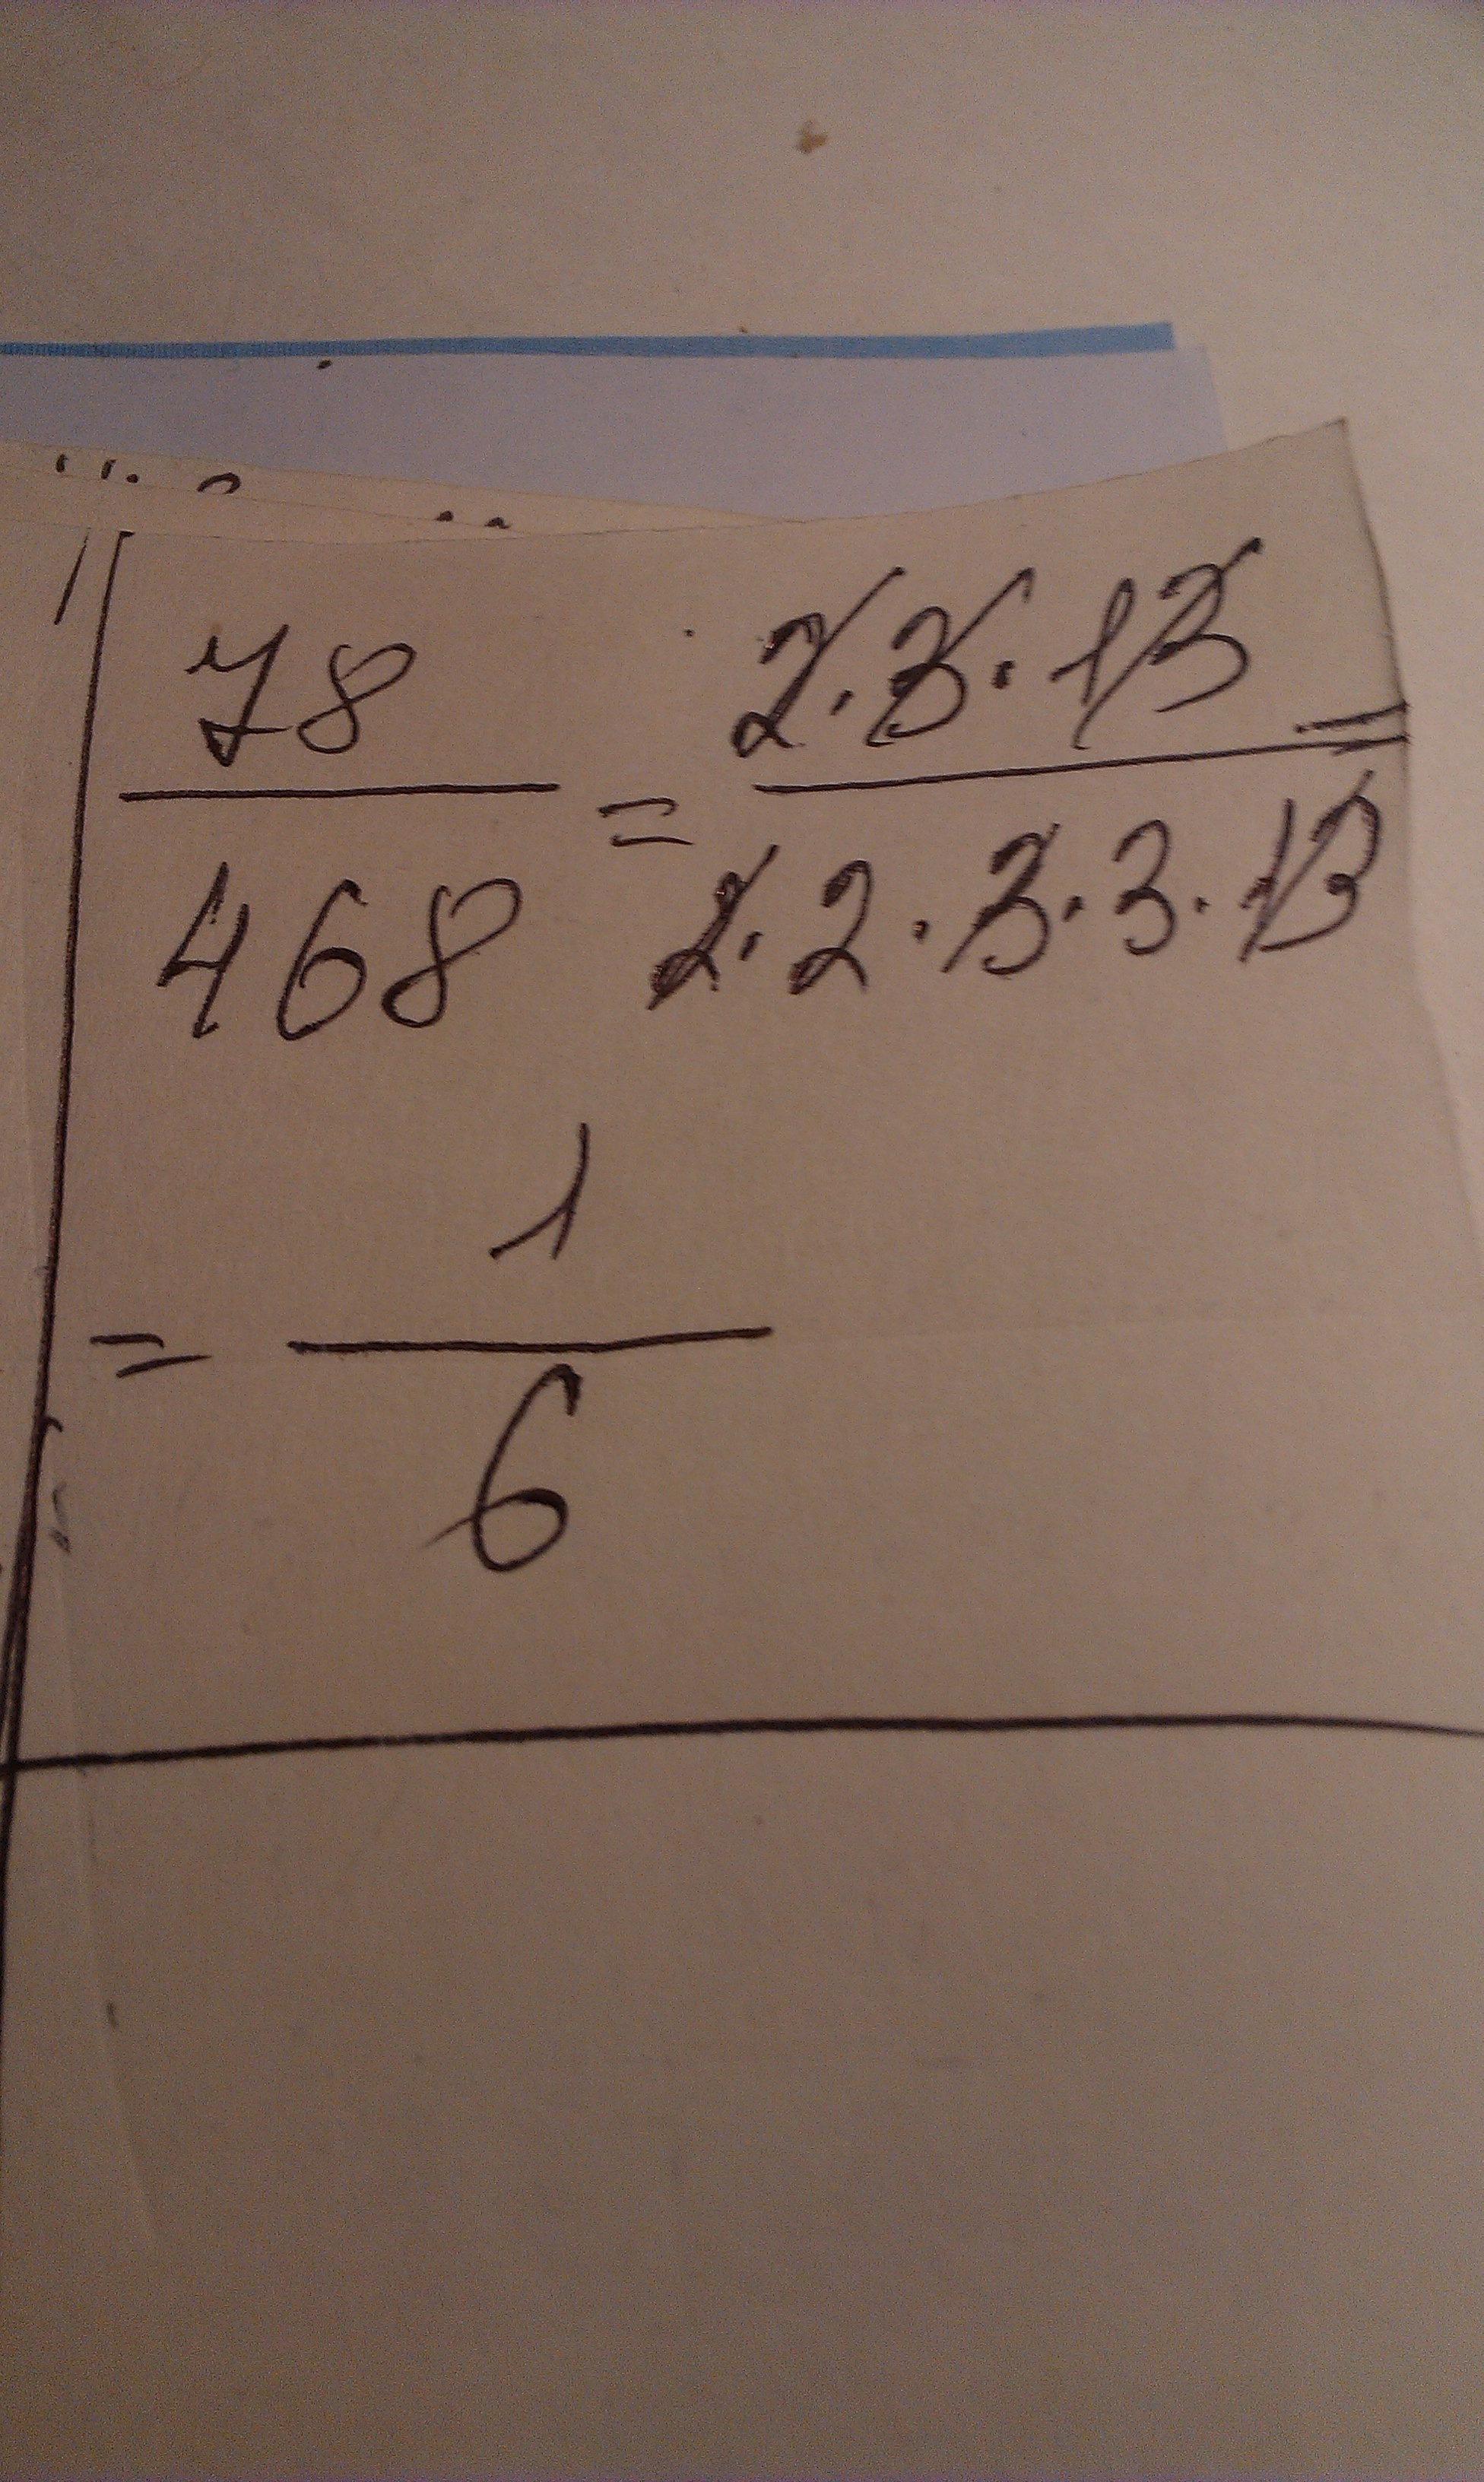 78/468 = 2·3·13/2·2·3·3·13 =
= 1/6